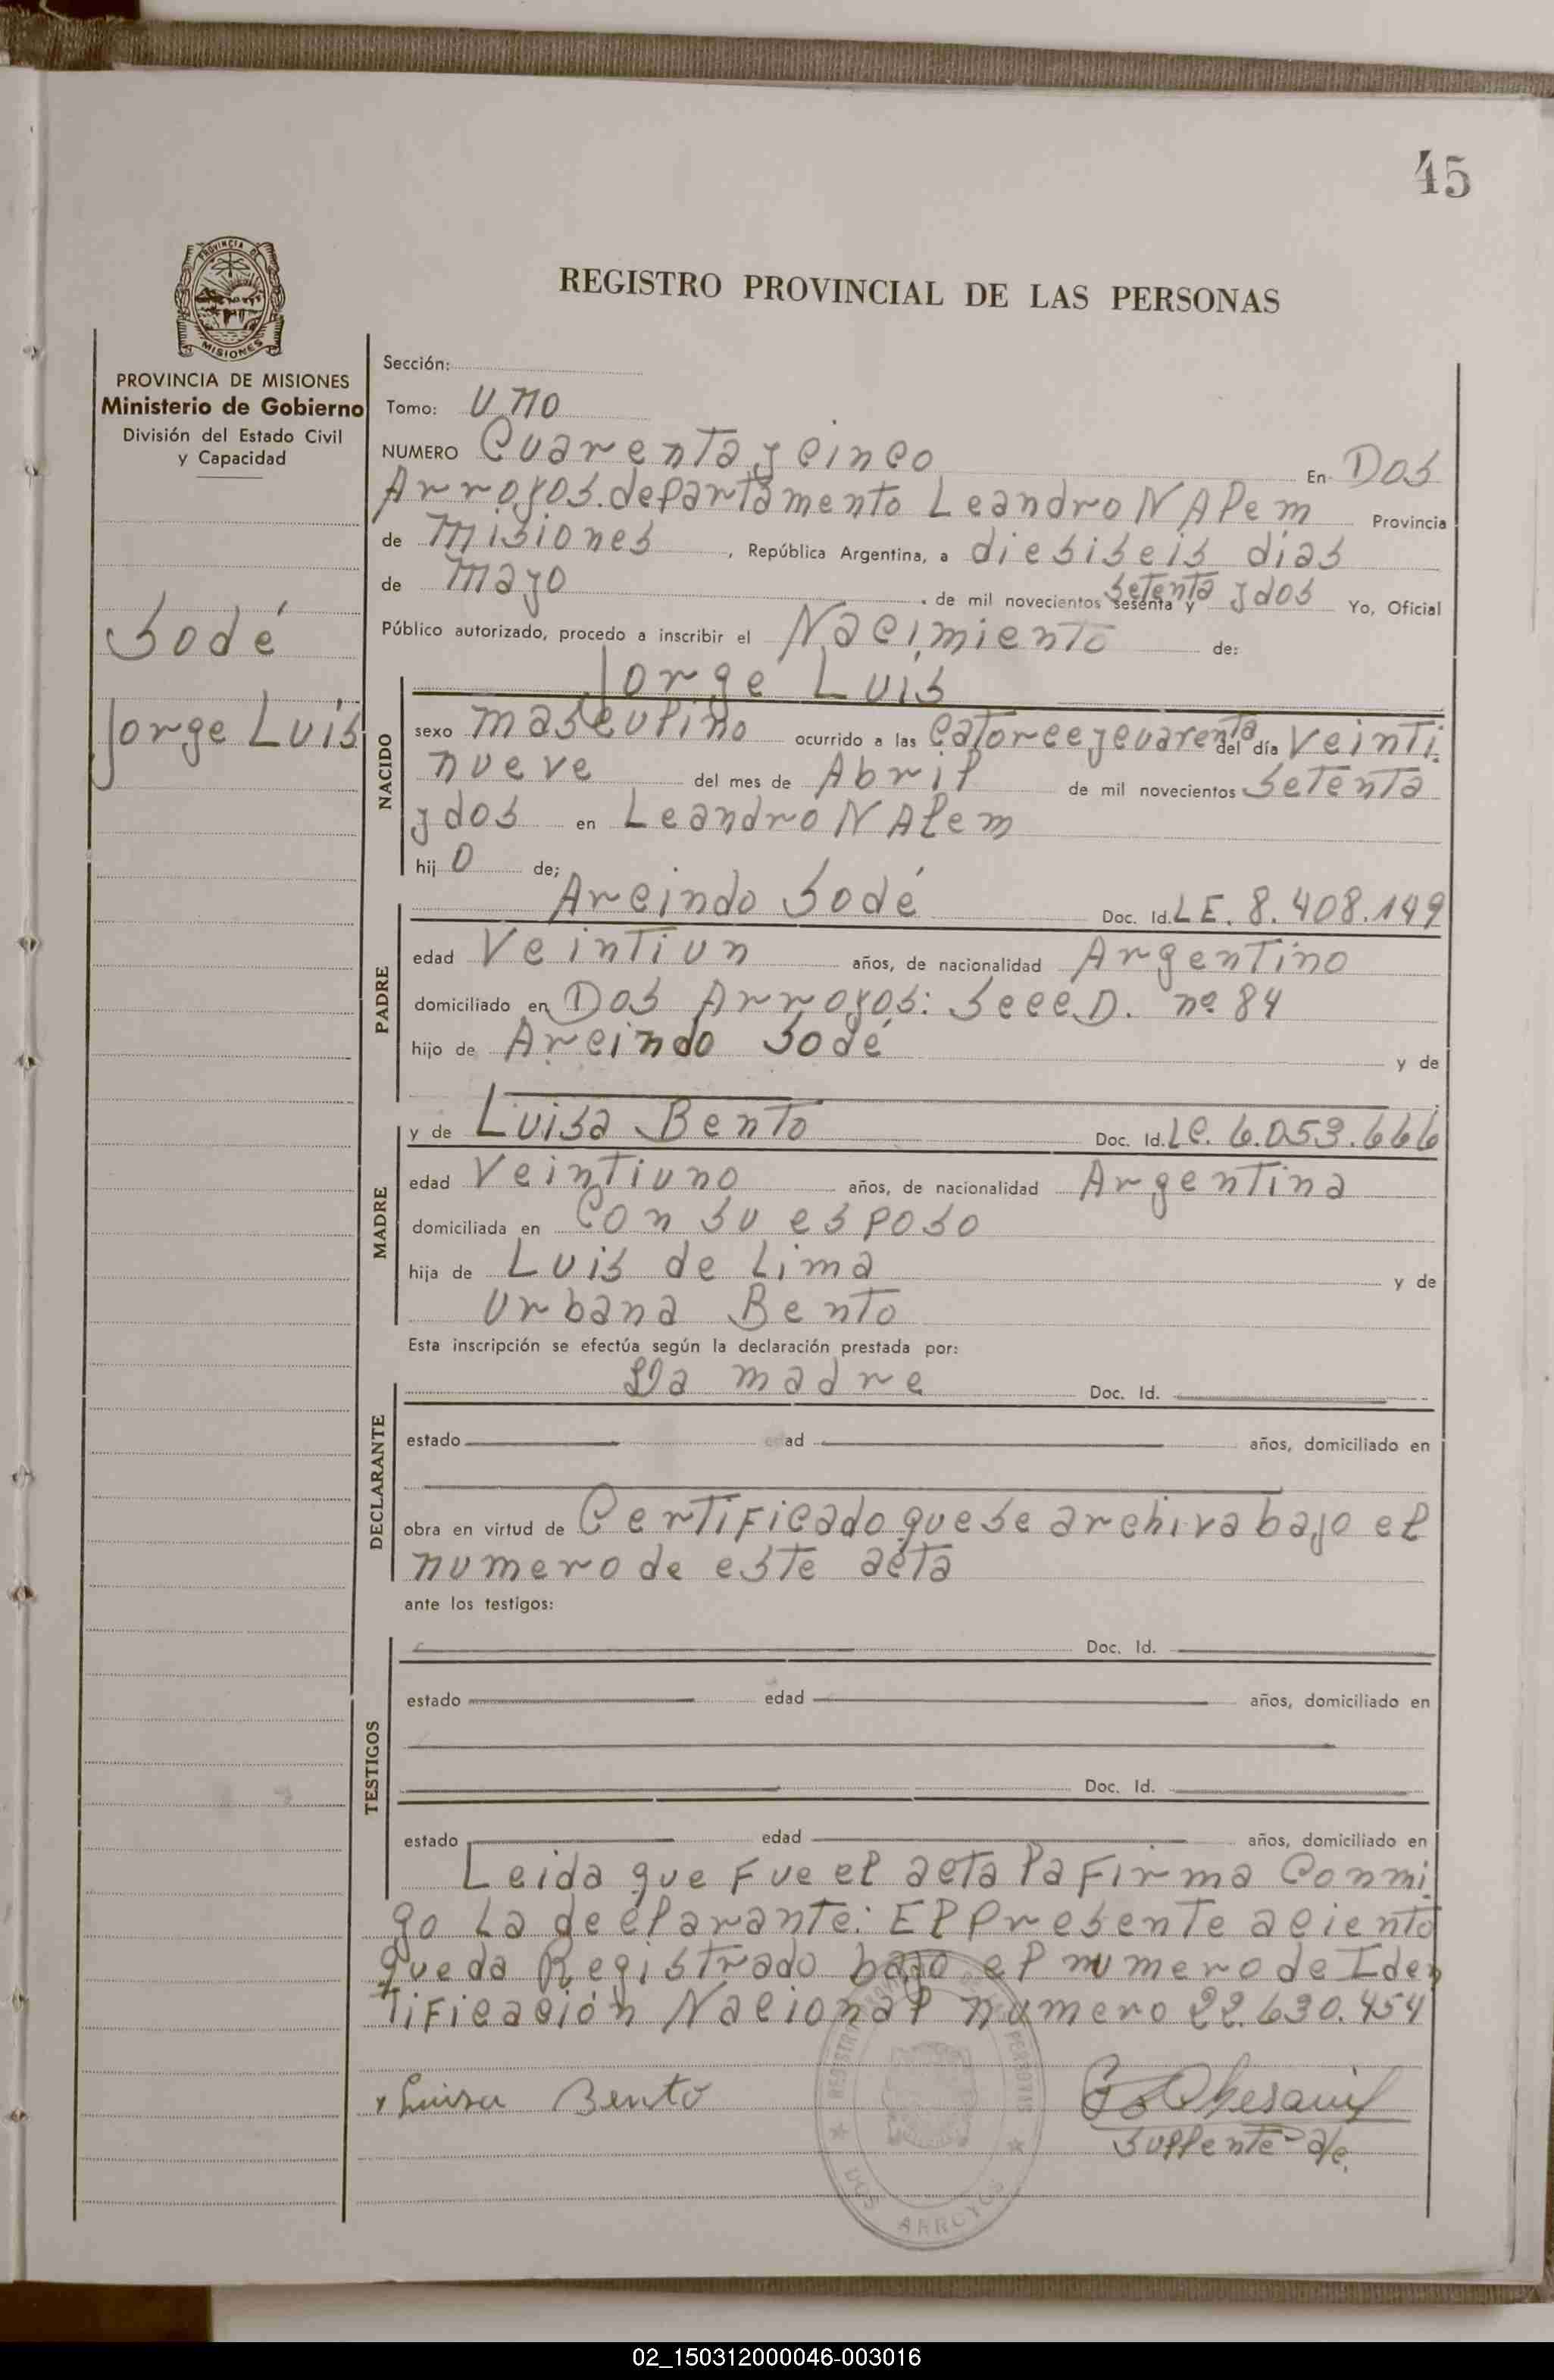 45
PROVINCIA DE
MISIONES
REGISTRO PROVINCIAL DE LAS PERSONAS
PROVINCIA DE MISIONES
Ministerio de Gobierno
División del Estado Civil
y Capacidad
Sodé
Jorge Luis
Sección:
Tomo: Uno
NUMERO Cuarenta y cinco En Dos
Arroyos. departamento Leandro N Alem Provincia
de Misiones, República Argentina, a diesiseis dias
de mayo de mil novecientos sesenta y setenta y dos Yo, Oficial
Público autorizado, procedo a inscribir el Nacimiento de:
Jorge Luis
NACIDO
sexo masculino ocurrido a las catorce y cuarenta del día Veinti
nueve del mes de Abril de mil novecientos Setenta
y dos en Leandro N Alem
hijo de;
PADRE
Arcindo Sodé Doc. Id. LE. 8.408.149
edad Veintiun años, de nacionalidad Argentino
domiciliado en Dos Arroyos: Secc D. nº 84
hijo de Arcindo Sodé y de
MADRE
y de Luisa Bento Doc. Id. Lc. 6.053.666
edad Veintiuno años, de nacionalidad Argentina
domiciliada en con su esposo
hija de Luis de Lima y de
Urbana Bento
Esta inscripción se efectúa según la declaración prestada por:
DECLARANTE
La madre Doc. Id.
estado edad años, domiciliado en
obra en virtud de Certificado que se archiva bajo el
numero de este acta
ante los testigos:
TESTIGOS
Doc. Id.
estado edad años, domiciliado en
Doc. Id.
estado edad años, domiciliado en
Leida que fue el acta la firma conmi
go La declarante: El presente aciento
queda Registrado bajo el numero de Iden
tificación Nacional numero 22.630.454
Luisa Bento
Suplente a/c.
DOS ARROYOS
02_150312000046-003016